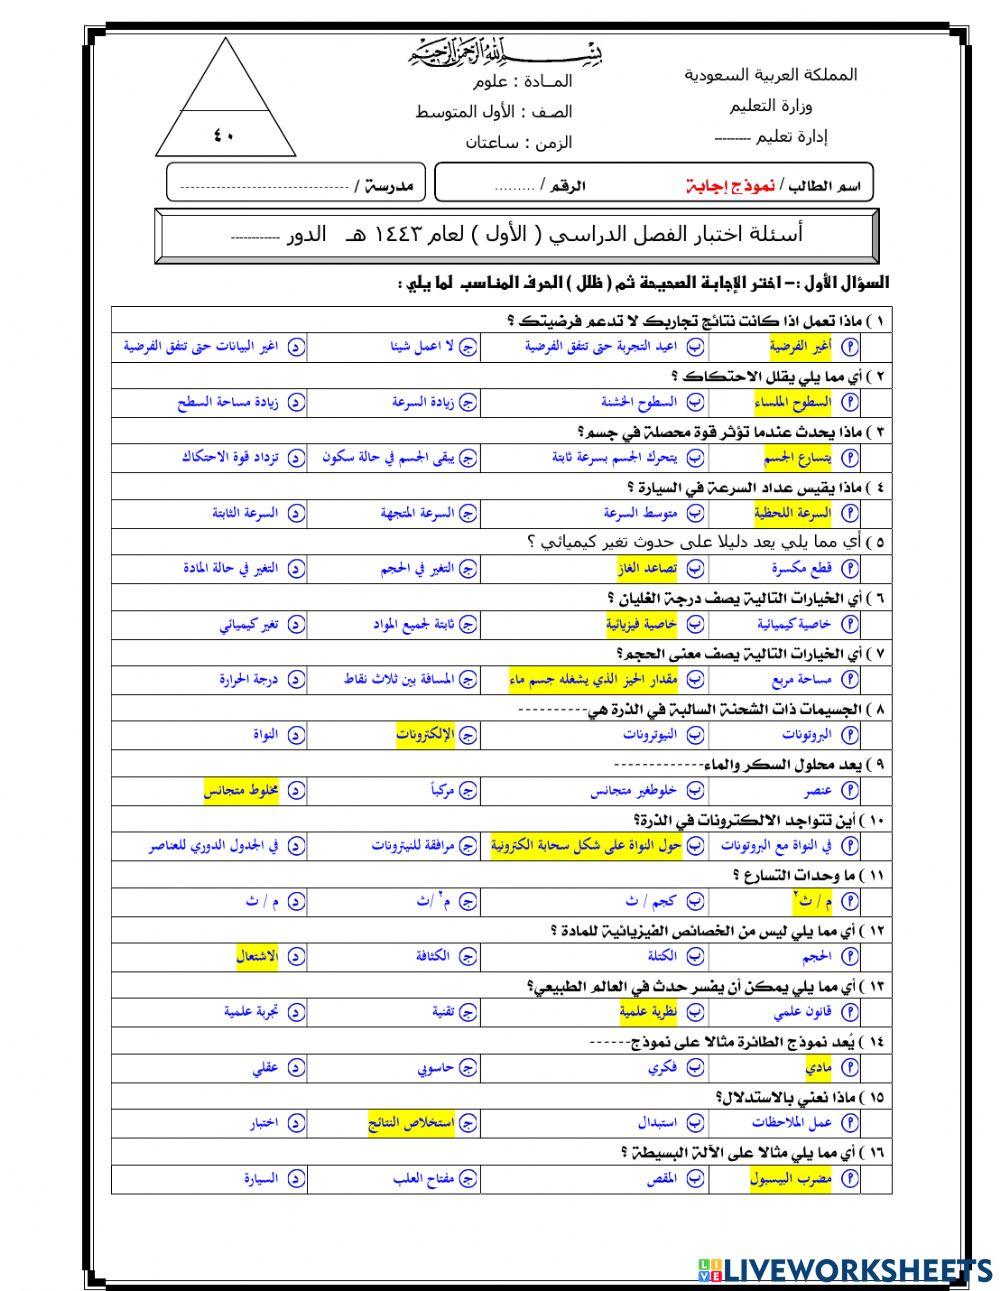 بسم الله الرحمن الرحيم
المملكة العربية السعودية
وزارة التعليم
إدارة تعليم ---------
المـادة : علوم
الصف : الأول المتوسط
الزمن : ساعتان
٤٠
اسم الطالب / نموذج إجابة الرقم / .........
مدرسة / --------------------------------
أسئلة اختبار الفصل الدراسي ( الأول ) لعام ١٤٤٣ هـ الدور -----------
السؤال الأول :- اختر الإجابة الصحيحة ثم ( ظلل ) الحرف المناسب لما يلي :
١ ) ماذا تعمل اذا كانت نتائج تجاربك لا تدعم فرضيتك ؟
أ أغير الفرضية ب اعيد التجربة حتى تتفق الفرضية ج لا اعمل شيئا د اغير البيانات حتى تتفق الفرضية
٢ ) أي مما يلي يقلل الاحتكاك ؟
أ السطوح الملساء ب السطوح الخشنة ج زيادة السرعة د زيادة مساحة السطح
٣ ) ماذا يحدث عندما تؤثر قوة محصلة في جسم؟
أ يتسارع الجسم ب يتحرك الجسم بسرعة ثابتة ج يبقى الجسم في حالة سكون د تزداد قوة الاحتكاك
٤ ) ماذا يقيس عداد السرعة في السيارة ؟
أ السرعة اللحظية ب متوسط السرعة ج السرعة المتجهة د السرعة الثابتة
٥ ) أي مما يلي يعد دليلا على حدوث تغير كيميائي ؟
أ قطع مكسرة ب تصاعد الغاز ج التغير في الحجم د التغير في حالة المادة
٦ ) أي الخيارات التالية يصف درجة الغليان ؟
أ خاصية كيميائية ب خاصية فيزيائية ج ثابتة لجميع المواد د تغير كيميائي
٧ ) أي الخيارات التالية يصف معنى الحجم؟
أ مساحة مربع ب مقدار الحيز الذي يشغله جسم ماء ج المسافة بين ثلاث نقاط د درجة الحرارة
٨ ) الجسيمات ذات الشحنة السالبة في الذرة هي----------
أ البروتونات ب النيوترونات ج الإلكترونات د النواة
٩ ) يعد محلول السكر والماء-------------
أ عنصر ب خلوطغير متجانس ج مركباً د مخلوط متجانس
١٠ ) أين تتواجد الالكترونات في الذرة؟
أ في النواة مع البروتونات ب حول النواة على شكل سحابة الكترونية ج مرافقة للنيترونات د في الجدول الدوري للعناصر
١١ ) ما وحدات التسارع ؟
أ م / ث٢ ب كجم / ث ج م٢ /ث د م / ث
١٢ ) أي مما يلي ليس من الخصائص الفيزيائية للمادة ؟
أ الحجم ب الكتلة ج الكثافة د الاشتعال
١٣ ) أي مما يلي يمكن أن يفسر حدث في العالم الطبيعي؟
أ قانون علمي ب نظرية علمية ج تقنية د تجربة علمية
١٤ ) يُعد نموذج الطائرة مثالا على نموذج------
أ مادي ب فكري ج حاسوبي د عقلي
١٥ ) ماذا نعني بالاستدلال؟
أ عمل الملاحظات ب استبدال ج استخلاص النتائج د اختبار
١٦ ) أي مما يلي مثالا على الآلة البسيطة ؟
أ مضرب البيسبول ب المقص ج مفتاح العلب د السيارة
LIVE LIVEWORKSHEETS